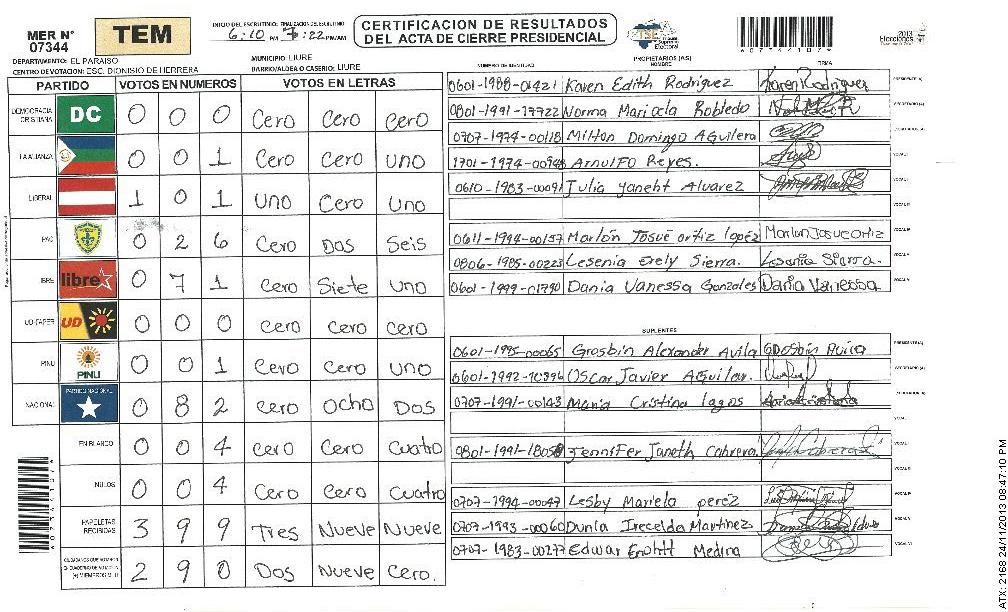 MER N° 07344
TEM
INICIO DEL ESCRUTINIO: 6:10 PM FINALIZACION DEL ESCRUTINIO 7:22 PM/AM
CERTIFICACION DE RESULTADOS
DEL ACTA DE CIERRE PRESIDENCIAL
TSE
2013
Elecciones
DEPARTAMENTO: EL PARAISO
MUNICIPIO: LIURE
CENTRO DE VOTACION: ESC. DIONISIO DE HERRERA
BARRIO/ALDEA O CASERIO: LIURE
PARTIDO VOTOS EN NUMEROS VOTOS EN LETRAS
DEMOCRACIA CRISTIANA DC 0 0 0 Cero Cero Cero
LA ALIANZA 0 0 1 Cero Cero Uno
LIBERAL 1 0 1 Uno Cero Uno
PAC 0 2 6 Cero Dos Seis
LIBRE libre 0 7 1 Cero Siete Uno
UD-FAPER UD 0 0 0 Cero Cero Cero
PINU PINU 0 0 1 Cero Cero Uno
NACIONAL PARTIDO NACIONAL 0 8 2 Cero Ocho Dos
EN BLANCO 0 0 4 Cero Cero Cuatro
NULOS 0 0 4 Cero Cero Cuatro
PAPELETAS RECIBIDAS 3 9 9 Tres Nueve Nueve
2 9 0 Dos Nueve Cero.
PROPIETARIOS (AS)
NUMERO DE IDENTIDAD NOMBRE FIRMA
0601-1988-01421 Karen Edith Rodriguez Karen Rodriguez PRESIDENTE (A)
0801-1991-17722 Norma Maricela Robledo SECRETARIO (A)
0707-1974-00118 Milton Domingo Aguilera
1701-1974-00948 Arnulfo Reyes. VOCAL I
0610-1983-00091 Julia Yaneht Alvarez VOCAL II
0611-1994-00157 Marlón Josué ortiz lopéz Marlon Josue Ortiz
0806-1985-00223 Lesenia Erely Sierra. Lesenia Sierra.
0601-1999-01790 Dania Vanessa Gonzales Dania Vanessa
SUPLENTES
0601-1995-00065 Grosbin Alexander Avila PRESIDENTE (A)
0601-1992-10396 Oscar Javier Aguilar. SECRETARIO (A)
0707-1991-00143 Maria Cristina lagos
VOCAL I
0801-1991-18058 Jennifer Janeth Cabrera
0707-1994-00047 Lesby Mariela perez
0707-1993-00060 Dunia Irecelda Martinez
0707-1983-00277 Edwar Enohtt Medina
ATX: 2168 24/11/2013 08:47:10 PM